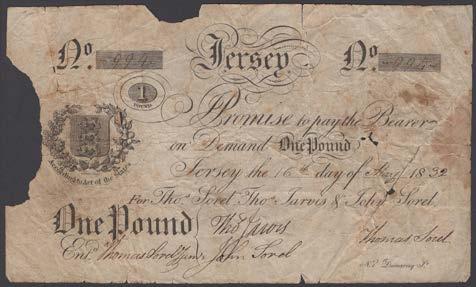 No. 994 Jersey No. 994
1
POUND
Promise to pay the Bearer
on Demand One Pound
Jersey the 16th day of 1832
According to Act of the States
For Thos. Sorel, Thos. Jarvis & John Sorel
One Pound Thos Jarvis
Entd. Thomas Sorel Junr John Sorel Thomas Sorel